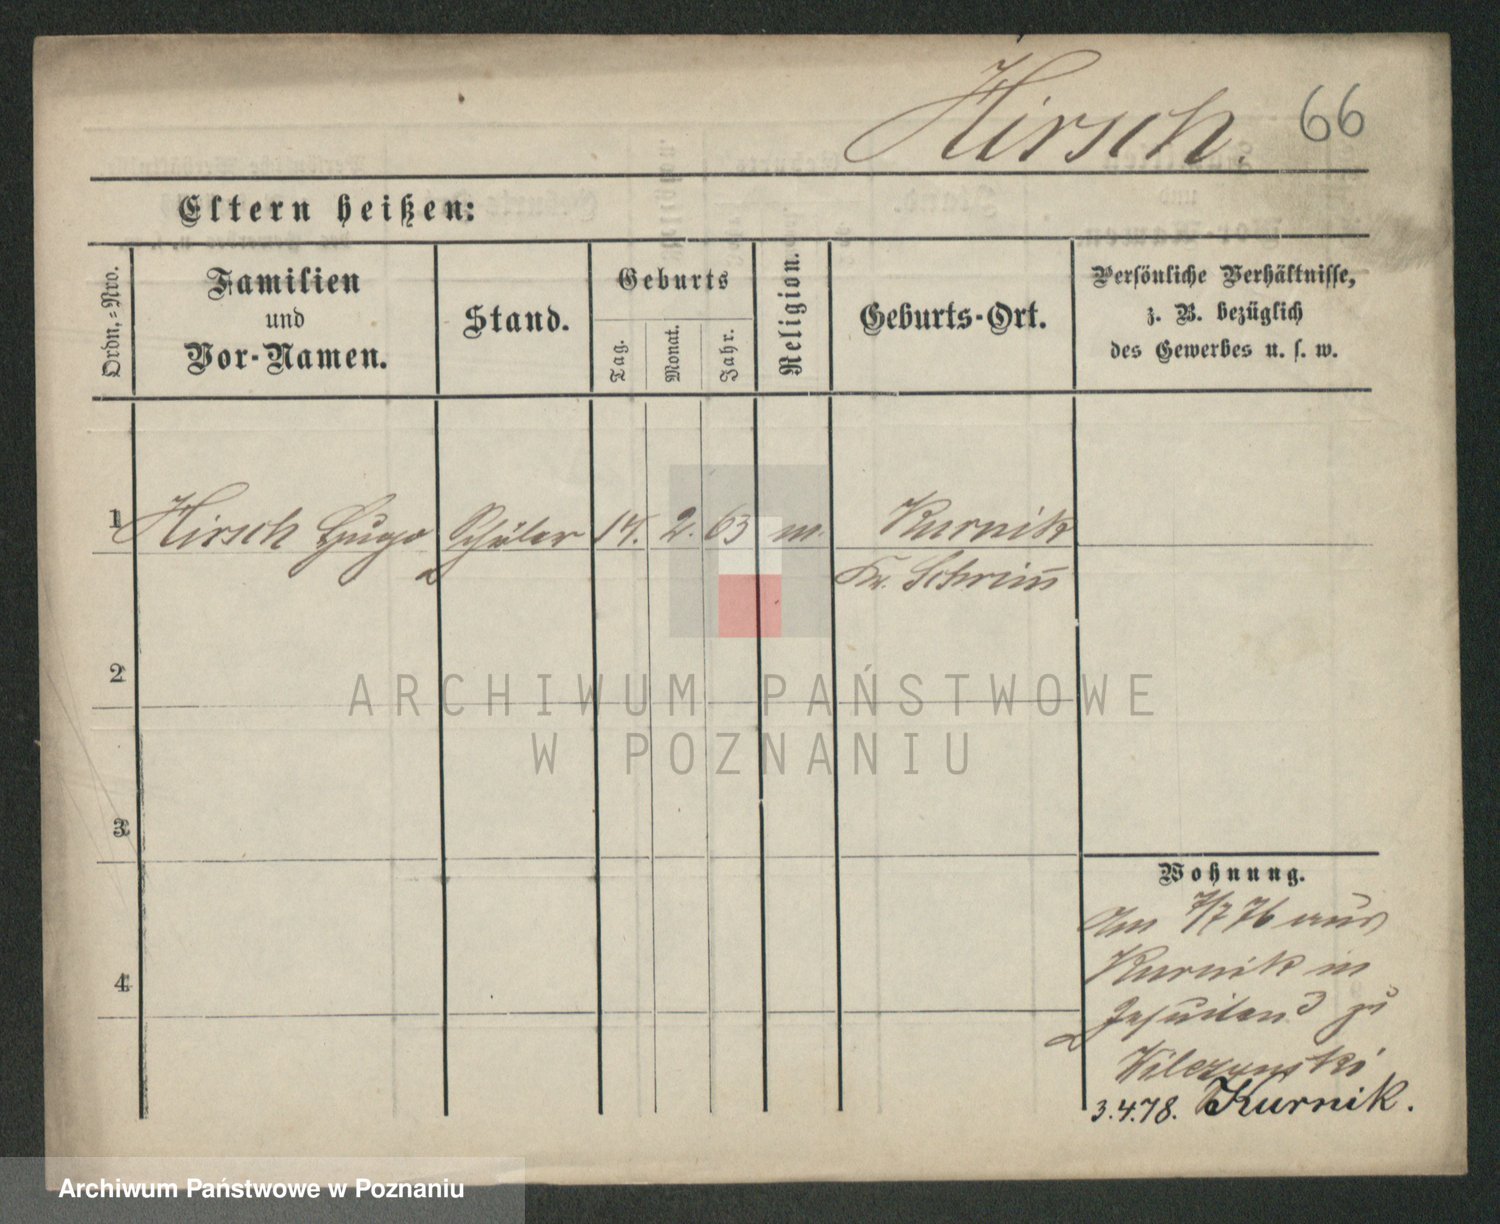 Hirsch. 66
Eltern heißen:
Ordn.-Nro.
Familien
und
Vor-Namen.
Stand.
Geburts
Tag.
Monat.
Jahr.
Religion.
Geburts-Ort.
Persönliche Verhältnisse,
z. B. bezüglich
des Gewerbes u. s. w.
1 Hirsch Hugo Schüler 14. 2. 63 m. Kurnik
Kr. Schrim
2
ARCHIWUM PAŃSTWOWE
W POZNANIU
3
Wohnung.
Am 7/7 76 aus
4 Kurnik in
Jesuitens zu
Wilczynski
3.4.78. Kurnik.
Archiwum Państwowe w Poznaniu